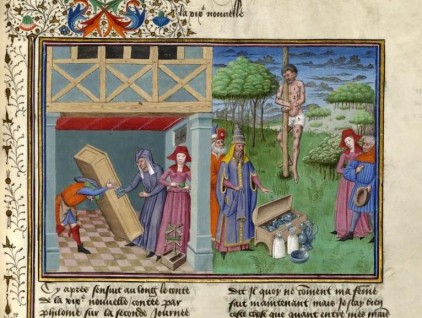 la xix^e nouvelle
Cy apres sensuit au long le conte
de la xix^e nouvelle contee par
philome sur la seconde Journee
dit Je quoy ne coment ma feme
fait maintenant mais Je scay bien